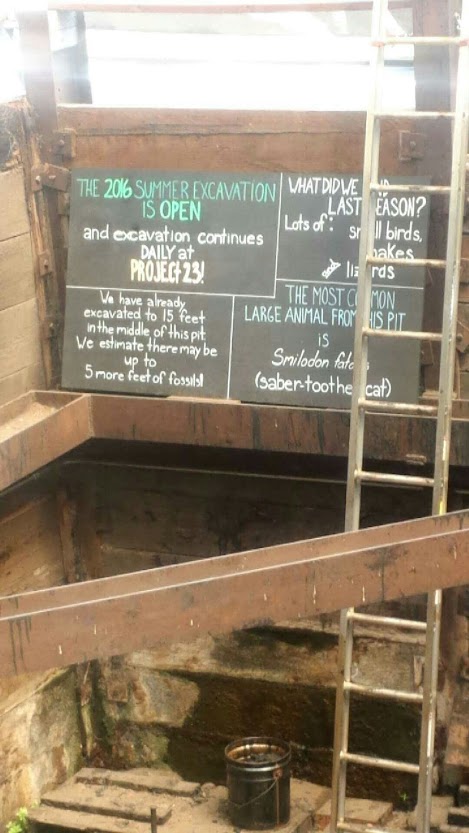 THE 2016 SUMMER EXCAVATION
IS OPEN
and excavation continues
DAILY at
PROJECT 23!
WHAT DID WE
LAST SEASON?
Lots of: small birds,
snakes
and lizards
We have already
excavated to 15 feet
in the middle of this pit
We estimate there may be
up to
5 more feet of fossils!
THE MOST COMMON
LARGE ANIMAL FROM THIS PIT
is
Smilodon fatalis
(saber-toothed cat)